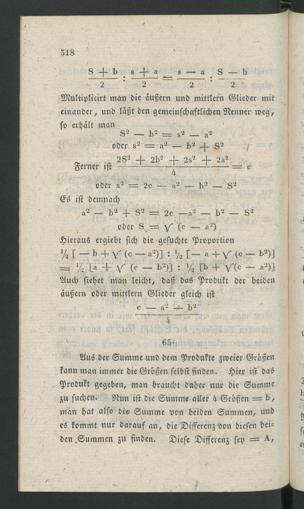 318
S + b / 2 : s + a / 2 = s — a / 2 : S — b / 2
Multiplicirt man die äußern und mittlern Glieder mit
einander, und läßt den gemeinschaftlichen Nenner weg,
so erhält man
S² — b² = s² — a²
oder s² = a² — b² + S²
Ferner ist 2S² + 2b² + 2s² + 2a² / 4 = c
oder s² = 2c — a² — b² — S²
Es ist demnach
a² — b² + S² = 2c — a² — b² — S²
oder S = √ (c — a²)
Hieraus ergiebt sich die gesuchte Proportion
½ [ — b + √ (c — a²)] : ½ [— a + √ (c — b²)]
= ½ [a + √ (c — b²)] : ½ [b + √ (c — a²)]
Auch siehet man leicht, daß das Produkt der beiden
äußern oder mittlern Glieder gleich ist
c — a² — b² / 4
65.
Aus der Summe und dem Produkte zweier Größen
kann man immer die Größen selbst finden. Hier ist das
Produkt gegeben, man braucht daher nur die Summe
zu suchen. Nun ist die Summe aller 4 Größen = b,
man hat also die Summe von beiden Summen, und
es kommt nur darauf an, die Differenz von diesen bei-
den Summen zu finden. Diese Differenz sey = A,